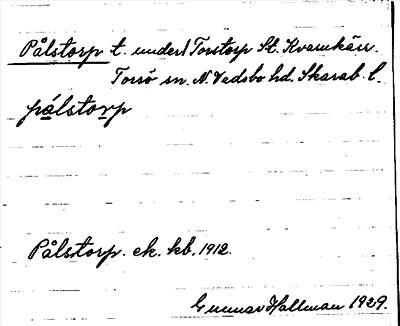 Pålstorp t. under Torstorp St. Kvarnkärr.
Torsö sn. N. Vadsbo hd. Skarab. l.
pålstorp
Pålstorp. ek. kb. 1912.
Gunnar Hallman 1929.